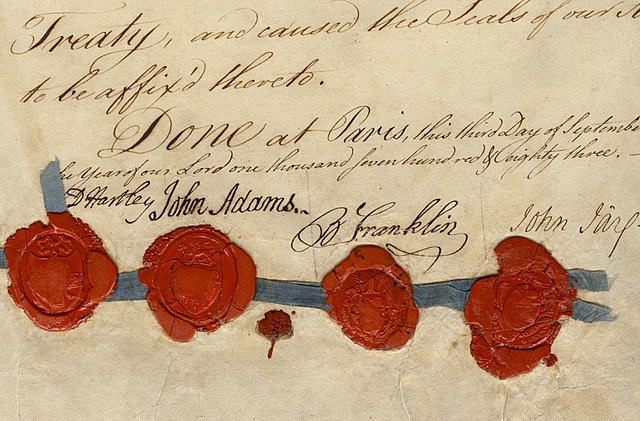 Treaty, and caused the Seals of our
to be affix'd thereto.
Done at Paris, this third Day of Septembe
he Year of our Lord one thousand seven hundred & eighty three. —
D Hartley John Adams.
B Franklin
John Jay